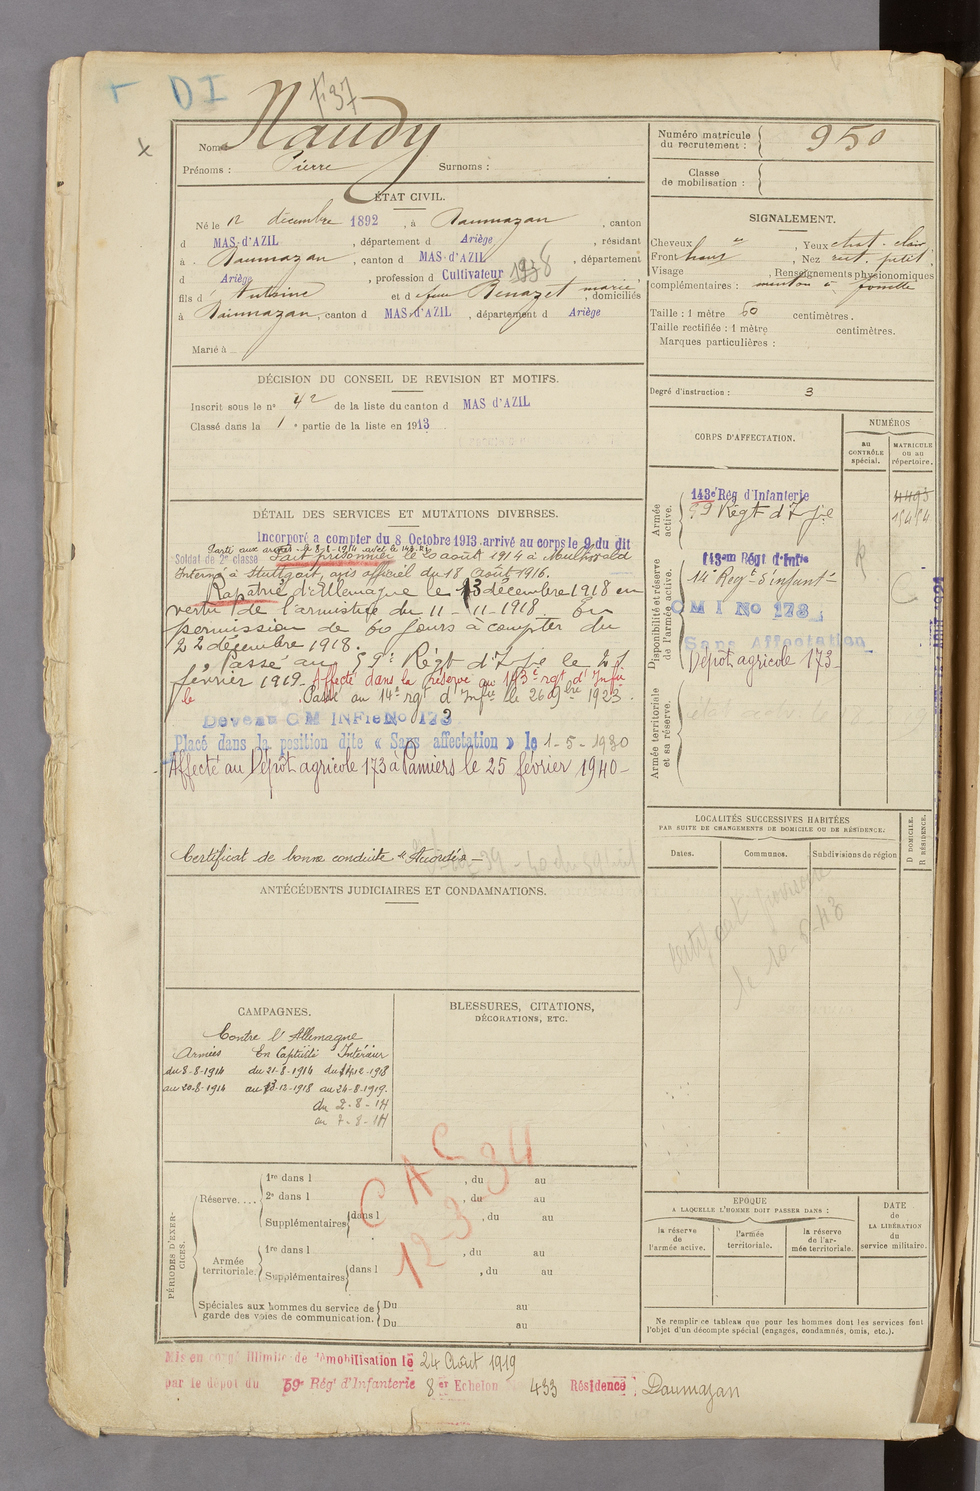 DI
F 37
Nom : Naudy
Prénoms : Pierre Surnoms :
Numéro matricule du recrutement : 950
Classe de mobilisation :
ÉTAT CIVIL.
Né le 12 décembre 1892, à Daumazan, canton
d MAS-d'AZIL, département d Ariège, résidant
à Daumazan, canton d MAS-d'AZIL, département
d Ariège, profession d Cultivateur 1938
fils d Antoine et d Benazet marie, domiciliés
à Daumazan, canton d MAS d'AZIL, département d Ariège
Marié à
SIGNALEMENT.
Cheveux , Yeux chat. clair
Front haut , Nez rect. petit
Visage , Renseignements physionomiques
complémentaires : menton à fossette
Taille : 1 mètre 60 centimètres.
Taille rectifiée : 1 mètre centimètres.
Marques particulières :
DÉCISION DU CONSEIL DE REVISION ET MOTIFS.
Inscrit sous le n° 42 de la liste du canton d MAS d'AZIL
Classé dans la 1e partie de la liste en 1913
Degré d'instruction : 3
CORPS D'AFFECTATION.
NUMÉROS
AU CONTRÔLE spécial.
MATRICULE ou au répertoire.
Armée active.
143e Rég d'Infanterie
59 Régt d'Ifie
4493
15454
Disponibilité et réserve de l'armée active.
143em Régt d'Infie
14e Régt d'infant
C M I No 173
Sans Affectation
Dépôt agricole 173
Armée territoriale et sa réserve.
DÉTAIL DES SERVICES ET MUTATIONS DIVERSES.
Incorporé a compter du 8 Octobre 1913 arrivé au corps le 9 du dit
Parti aux armées le 8-8-1914 avec le 143 RI
Soldat de 2e classe Fait prisonnier le 20 août 1914 à Meulhwald
Interné à Stuttgart, avis officiel du 18 Août 1916.
Rapatrié d'Allemagne le 13 décembre 1918 en
vertu de l'armistice du 11-11-1918. En
permission de 60 jours à compter du
22 décembre 1918.
Passé au 59e Régt d'Ifie le 21
février 1919. Affecté dans la Réserve au 143e rgt d'Infie
le Passé au 14e rgt d'Infie le 26 9bre 1923.
Devenu C M INFie No 173
Placé dans la position dite « Sans affectation » le 1-5-1930
Affecté au Dépôt agricole 173 à Pamiers le 25 février 1940
Certificat de bonne conduite "Accordé"
LOCALITÉS SUCCESSIVES HABITÉES
PAR SUITE DE CHANGEMENTS DE DOMICILE OU DE RÉSIDENCE.
Dates. Communes. Subdivisions de région
D DOMICILE. R RÉSIDENCE.
le 10-8-43
ANTÉCÉDENTS JUDICIAIRES ET CONDAMNATIONS.
CAMPAGNES.
Contre l'Allemagne
Armées En Captivité Intérieur
du 8-8-1914 du 21-8-1914 du 14-12-1918
au 20-8-1914 au 13-12-1918 au 24-8-1919.
du 2-8-14
au 7-8-14
BLESSURES, CITATIONS,
DÉCORATIONS, ETC.
C A C
12-3-34
PÉRIODES D'EXERCICES.
Réserve....
1re dans l , du au
2e dans l , du au
Supplémentaires dans l , du au
Armée territoriale.
1re dans l , du au
Supplémentaires dans l , du au
Spéciales aux hommes du service de garde des voies de communication.
Du au
Du au
EPOQUE
A LAQUELLE L'HOMME DOIT PASSER DANS :
la réserve de l'armée active.
l'armée territoriale.
la réserve de l'armée territoriale.
DATE de LA LIBÉRATION du service militaire.
Ne remplir ce tableau que pour les hommes dont les services font
l'objet d'un décompte spécial (engagés, condamnés, omis, etc.).
Mis en congé illimité de démobilisation le 24 Août 1919
par le dépôt du 59e Rég' d'Infanterie 8er Echelon 433 Résidence : Daumazan